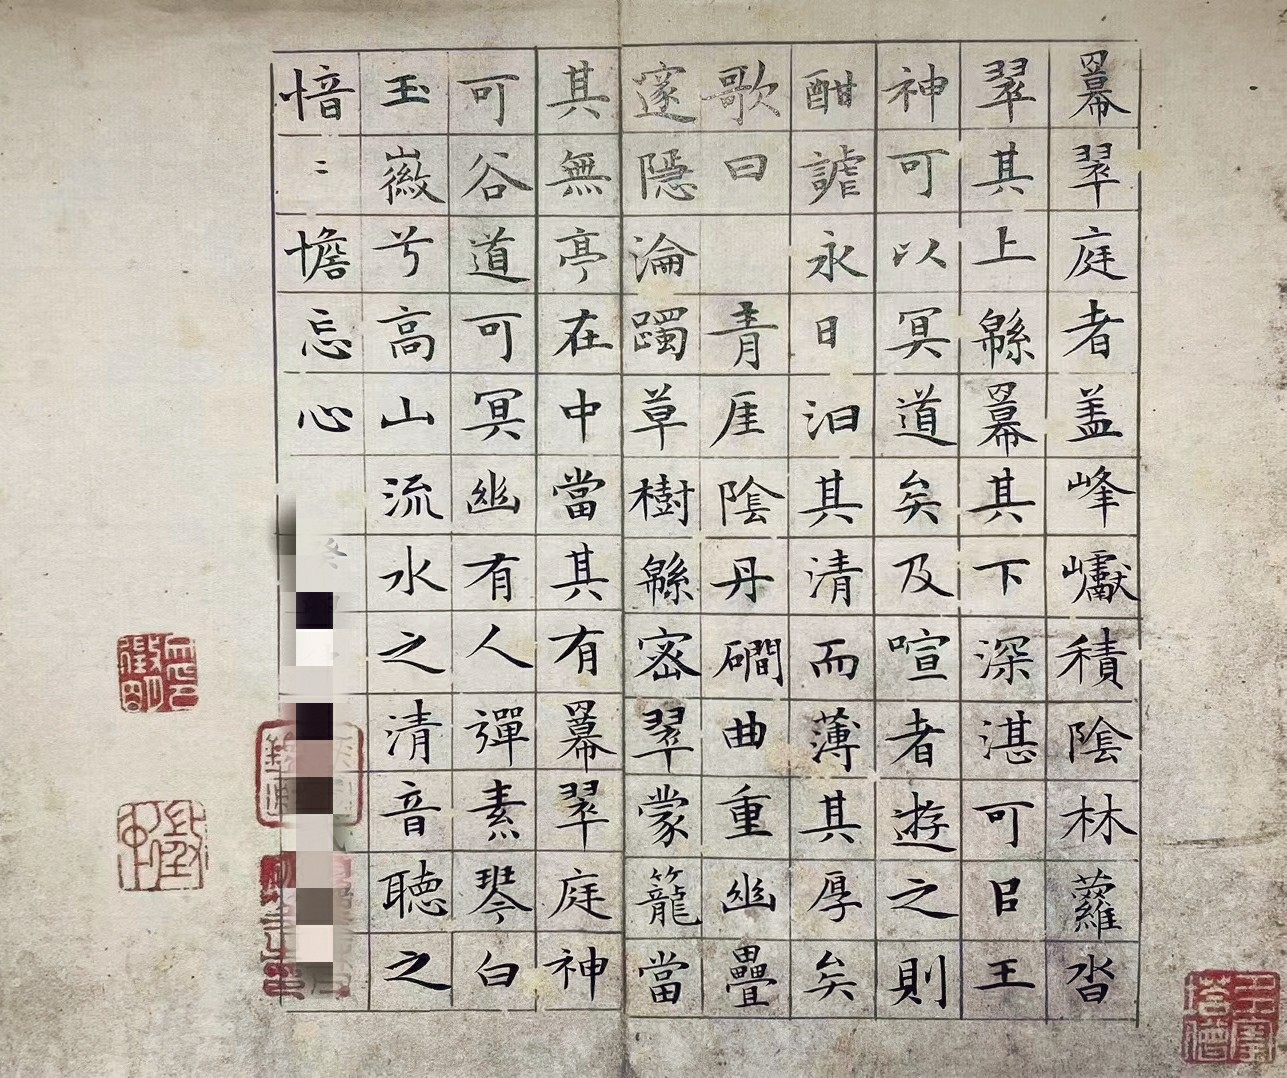 羃翠庭者盖峰巘積陰林蘿沓
翠其上緜羃其下深湛可㠯王
神可以冥道矣及喧者遊之則
酣謔永日汩其清而薄其厚矣
歌曰 青厓陰丹磵曲重幽疊
邃隱淪躅草樹緜宻翠蒙籠當
其無亭在中當其有羃翠庭神
可谷道可冥幽有人彈素琴白
玉徽兮高山流水之清音聽之
愔〻憺忘心